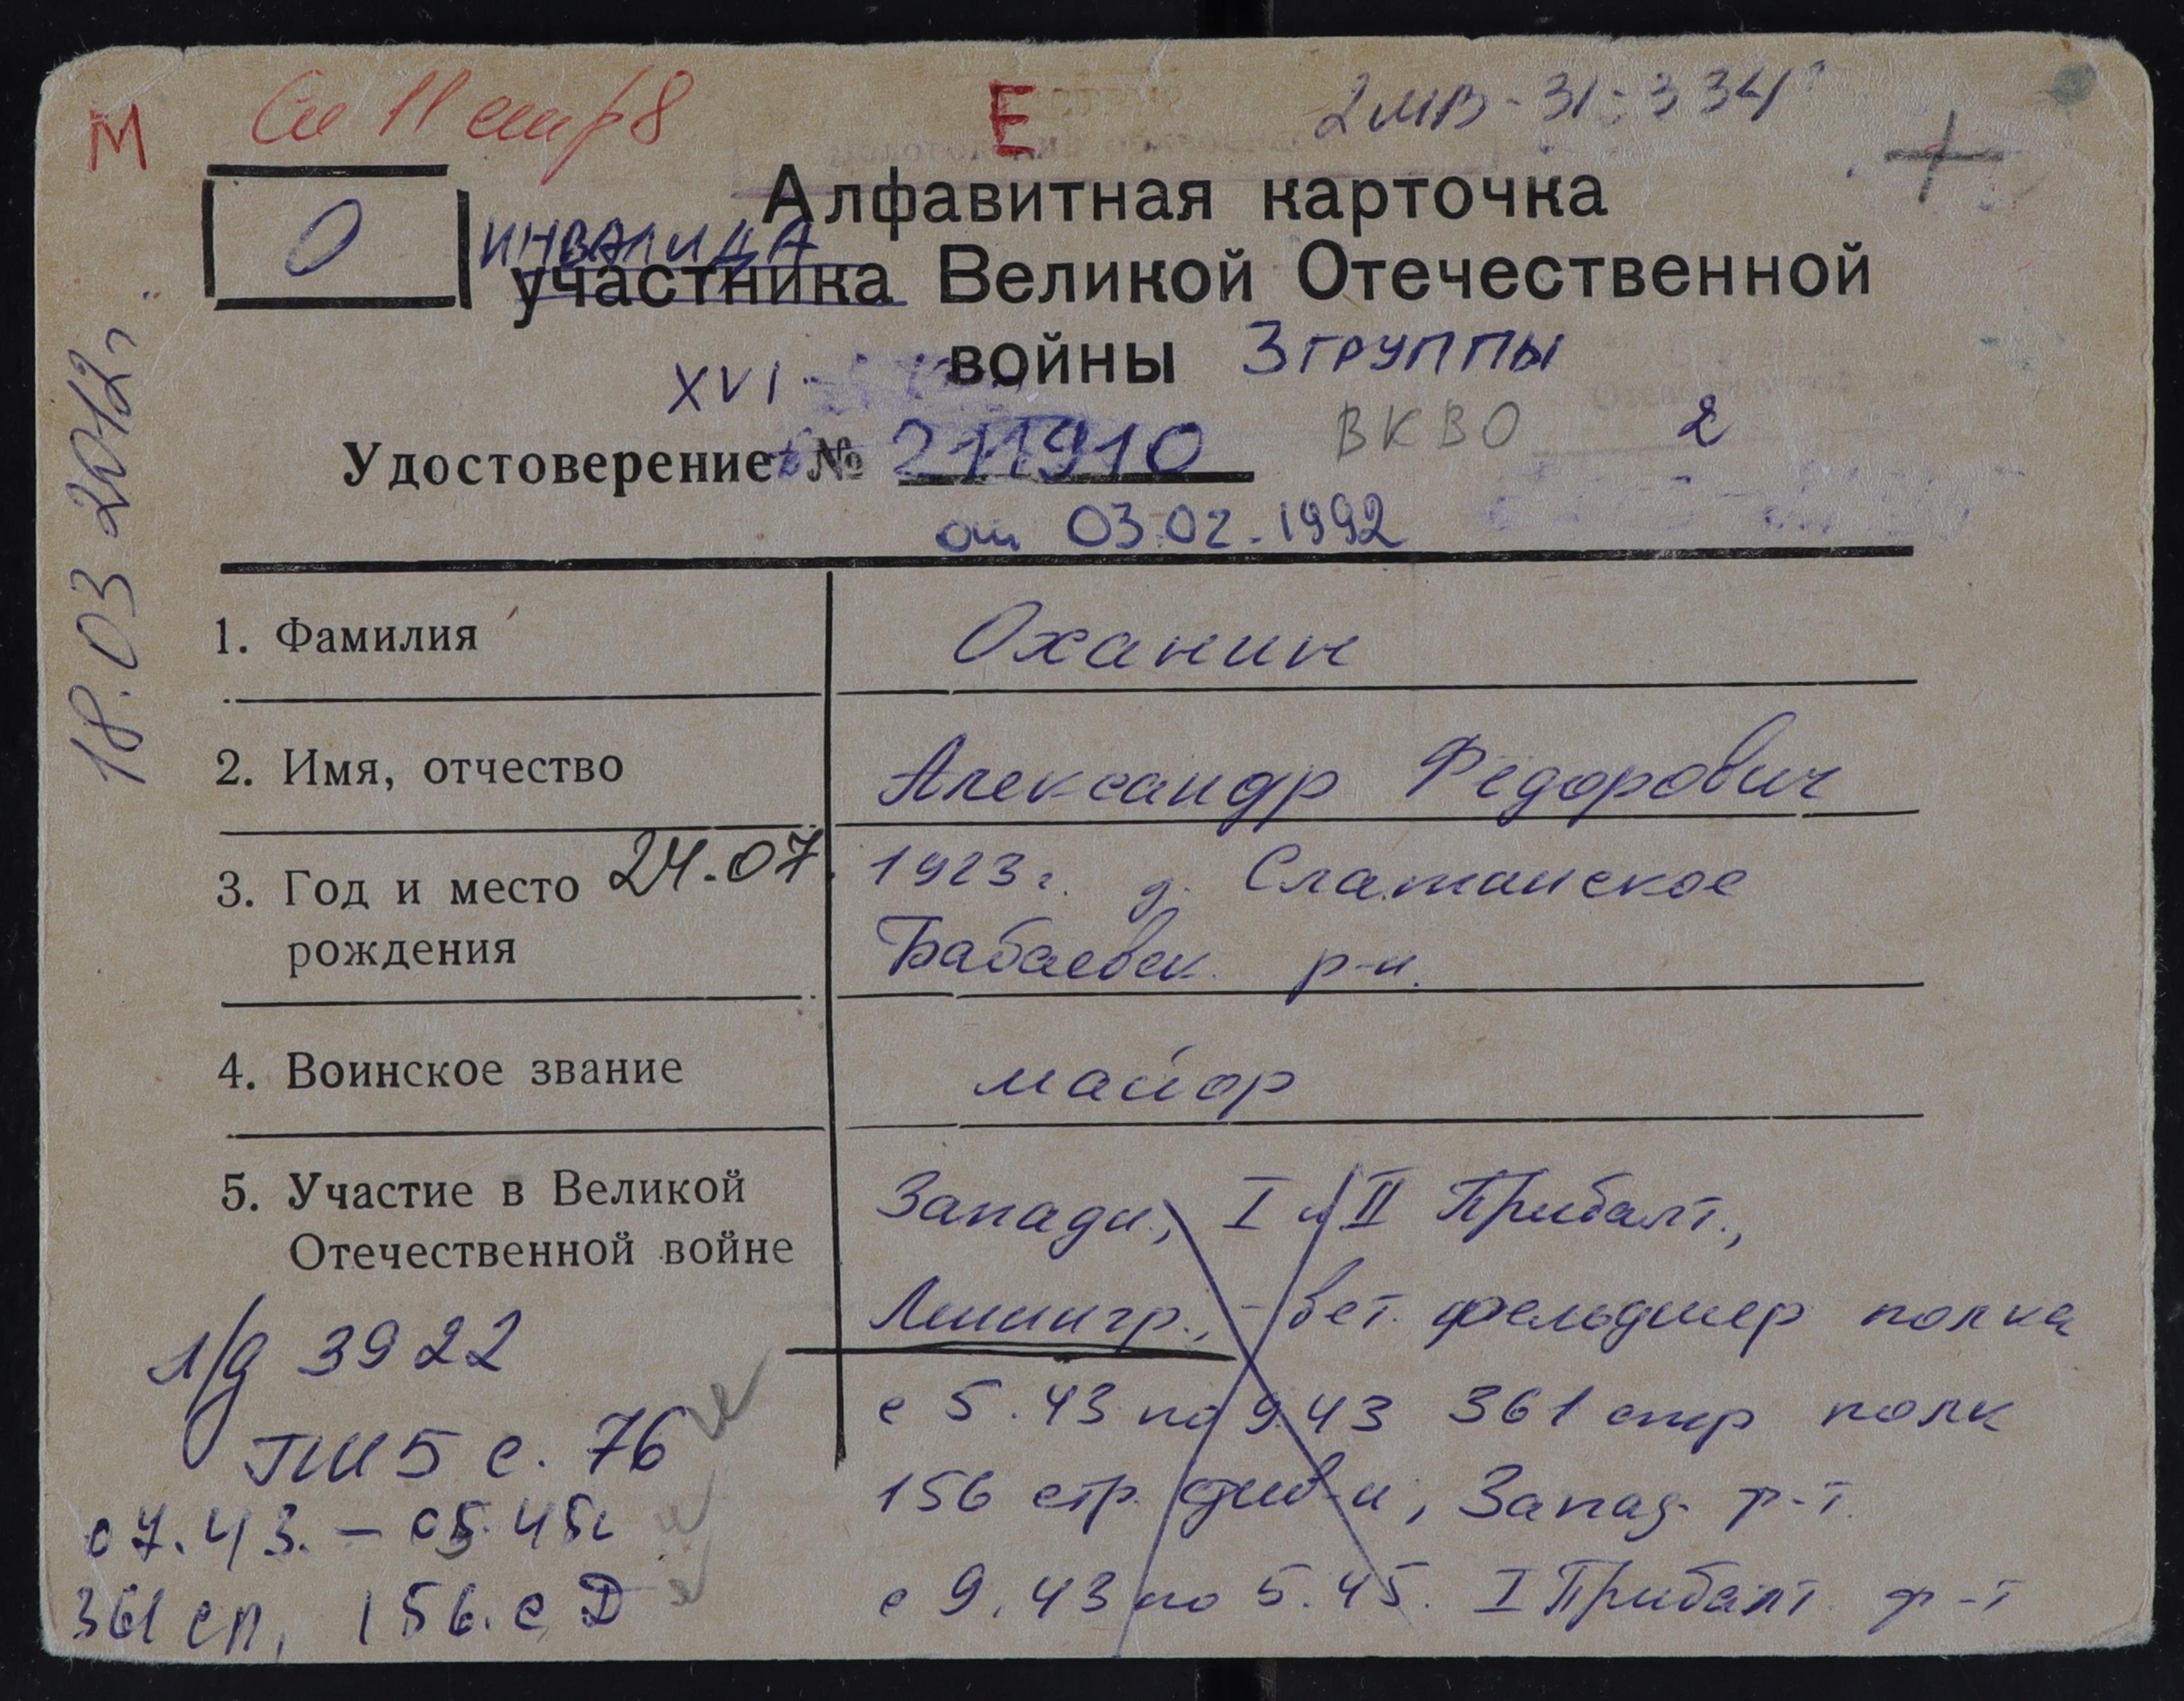 М Е 2МВ-31-334
О
Алфавитная карточка
ИНВАЛИДА
участника Великой Отечественной
войны 3 ГРУППЫ
XVI
Удостоверение № 211910 ВКВО 2
от 03.02.1992
18.03 2012г
1. Фамилия Оханин
2. Имя, отчество Александр Федорович
3. Год и место 24.07. 1923г. д. Слатинское
рождения Бабаевск. р-н.
4. Воинское звание майор
5. Участие в Великой Западн., I и II Прибалт.,
Отечественной войне
Ленингр., - вет. фельдшер полка
л/д 3922
с 5.43 по 9.43 361 стр полк
ПМ5 с. 76
156 стр. див-и, Запад. ф-т.
07.43. - 05.45г
с 9.43 по 5.45. I Прибалт. ф-т
361 сп, 156. с Д